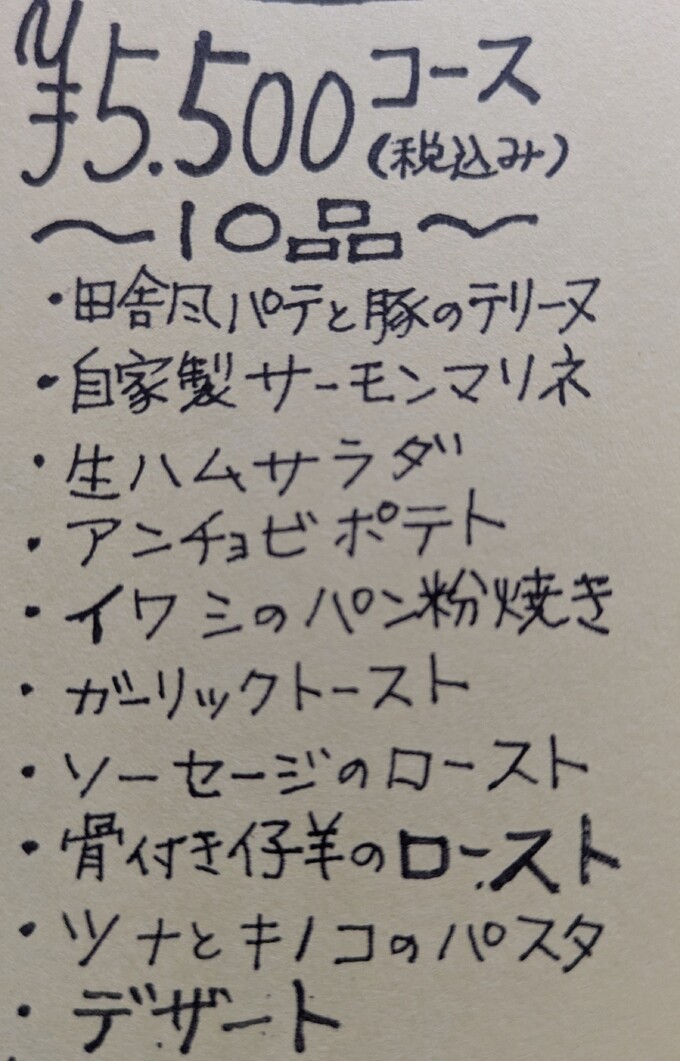 ¥5.500コース
(税込み)
〜10品〜
・田舎風パテと豚のテリーヌ
・自家製サーモンマリネ
・生ハムサラダ
・アンチョビポテト
・イワシのパン粉焼き
・ガーリックトースト
・ソーセージのロースト
・骨付き仔羊のロースト
・ツナとキノコのパスタ
・デザート